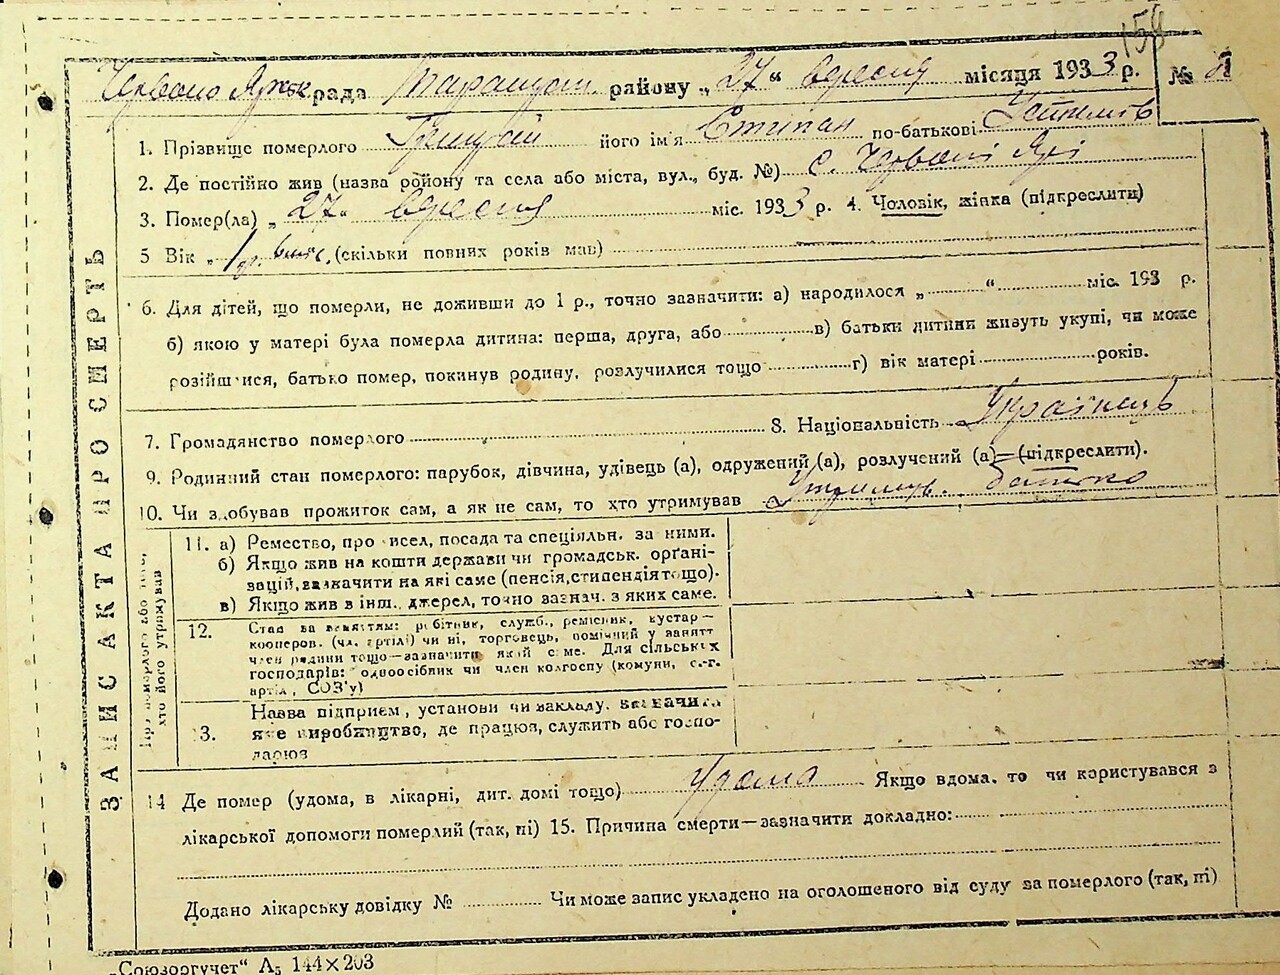 159
Червоно Ярск рада Таращан. району „27“ вересня місяця 1933 р. №
1. Прізвище померлого Грицай його ім'я Стипан по-батькові
2. Де постійно жив (назва району та села або міста, вул., буд. №) с. Червоні Ярі
3. Помер(ла) „27“ вересня міс. 1933 р. 4. Чоловік, жінка (підкреслити)
5 Вік „1 (скільки повних років мав)
6. Для дітей, що померли, не доживши до 1 р., точно зазначити: а) народилося „ “ міс. 193 р.
б) якою у матері була померла дитина: перша, друга, або в) батьки дитини живуть укупі, чи може
розійшлися, батько помер, покинув родину, розлучилися тощо г) вік матері років.
7. Громадянство померлого 8. Національність Українець
9. Родинний стан померлого: парубок, дівчина, удівець (а), одружений (а), розлучений (а) (підкреслити).
10. Чи здобував прожиток сам, а як не сам, то хто утримував Утримув. батько
ЗАПИС АКТА ПРО СМЕРТЬ
Про померлого або того, хто його утримував
11. а) Ремество, промисел, посада та спеціяльн. за ними.
б) Якщо жив на кошти держави чи громадськ. орґані-
зацій, зазначити на які саме (пенсія, стипендія тощо).
в) Якщо жив в інш. джерел, точно зазнач. з яких саме.
12. Стан за заняттям: робітник, служб., ремісник, кустар—
кооперов. (чл. артілі) чи ні, торговець, помічний у занятт
член родини тощо—зазначити який саме. Для сільських
господарів: одноосібник чи член колгоспу (комуни, с.-г.
артіл., СОЗ'у)
13. Назва підприєм., установи чи закладу, зазначити
яке виробництво, де працюв, служить або госпо-
дарюв
14 Де помер (удома, в лікарні, дит. домі тощо) Удома Якщо вдома, то чи користувався з
лікарської допомоги померлий (так, ні) 15. Причина смерти—зазначити докладно:
Додано лікарську довідку № Чи може запис укладено на оголошеного від суду за померлого (так, ні)
„Союзоргучет“ А5 144×203